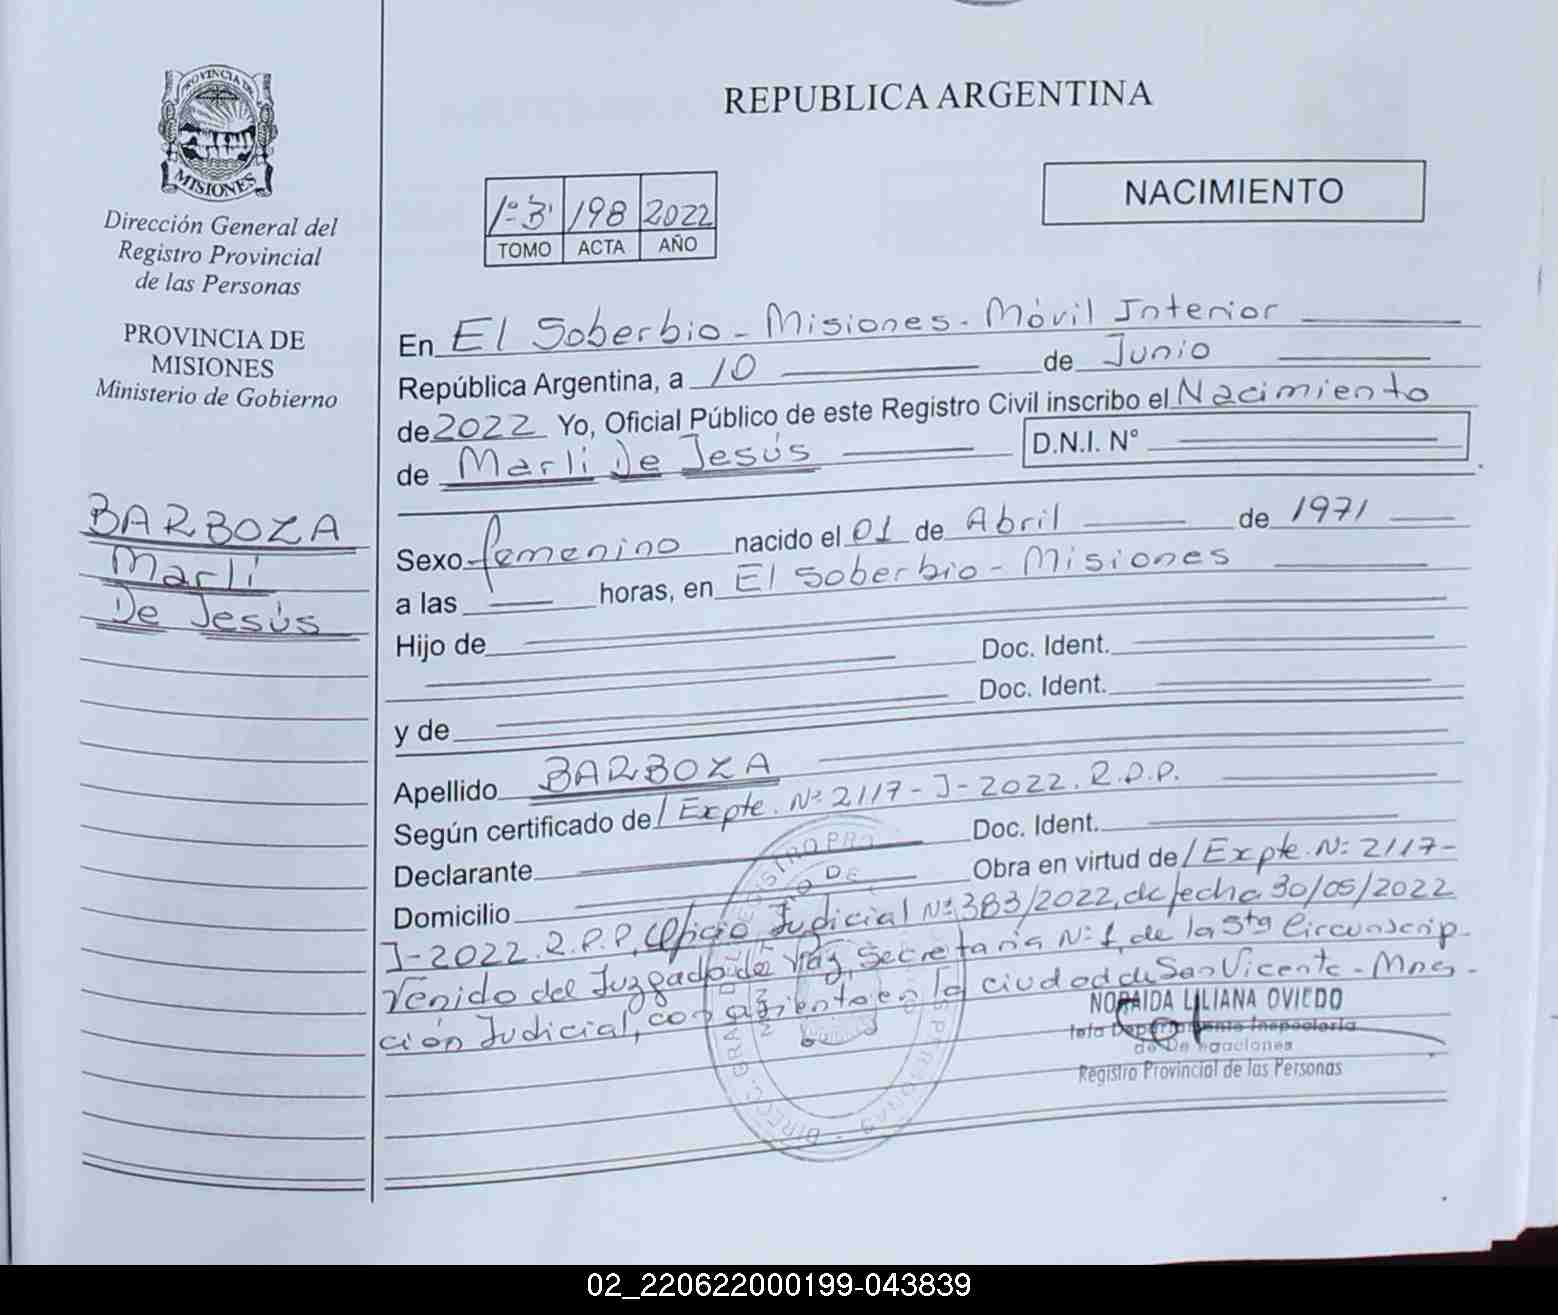 PROVINCIA DE
MISIONES
Dirección General del
Registro Provincial
de las Personas
PROVINCIA DE
MISIONES
Ministerio de Gobierno
BARBOZA
Marli
De Jesús
REPUBLICA ARGENTINA
1º "B" 198 2022
TOMO ACTA AÑO
NACIMIENTO
En El Soberbio - Misiones - Móvil Interior
República Argentina, a 10 de Junio
de 2022 Yo, Oficial Público de este Registro Civil inscribo el Nacimiento
de Marli De Jesús D.N.I. Nº
Sexo femenino nacido el 01 de Abril de 1971
a las horas, en El Soberbio - Misiones
Hijo de Doc. Ident.
Doc. Ident.
y de
Apellido BARBOZA
Según certificado de / Expte. Nº 2117 - J - 2022. R.P.P.
Declarante Doc. Ident.
Domicilio Obra en virtud de / Expte. Nº 2117 -
J - 2022. R.P.P, Oficio Judicial Nº 383/2022, de fecha 30/05/2022
Venido del Juzgado de Paz, Secretaria Nº 1, de la 5ta Circunscrip-
ción Judicial, con asiento en la ciudad de San Vicente - Mnes -
NORAIDA LILIANA OVIEDO
Jefa Departamento Inspectoria
de Delegaciones
Registro Provincial de las Personas
02_220622000199-043839